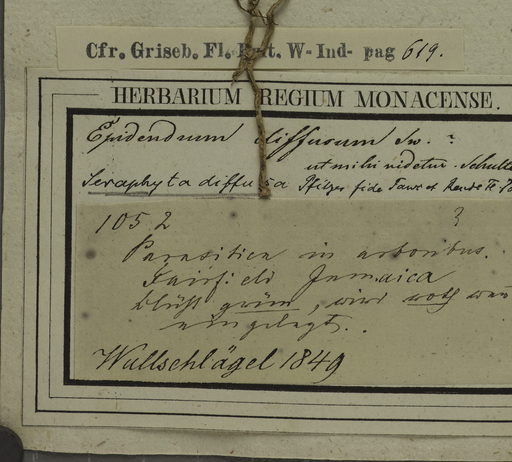 Cfr. Griseb. Fl. Brit. W-Ind- pag 619.
HERBARIUM REGIUM MONACENSE.
Epidendrum diffusum Sw. ?
ut mihi videtur. Schult
Seraphyta diffusa Pfitzer fide Fawc et Rendle
1052 ?
Parasitica in arboribus.
Fairfield Jamaica
blüht grün, wird roth wenn
eingelegt.
Wullschlägel 1849